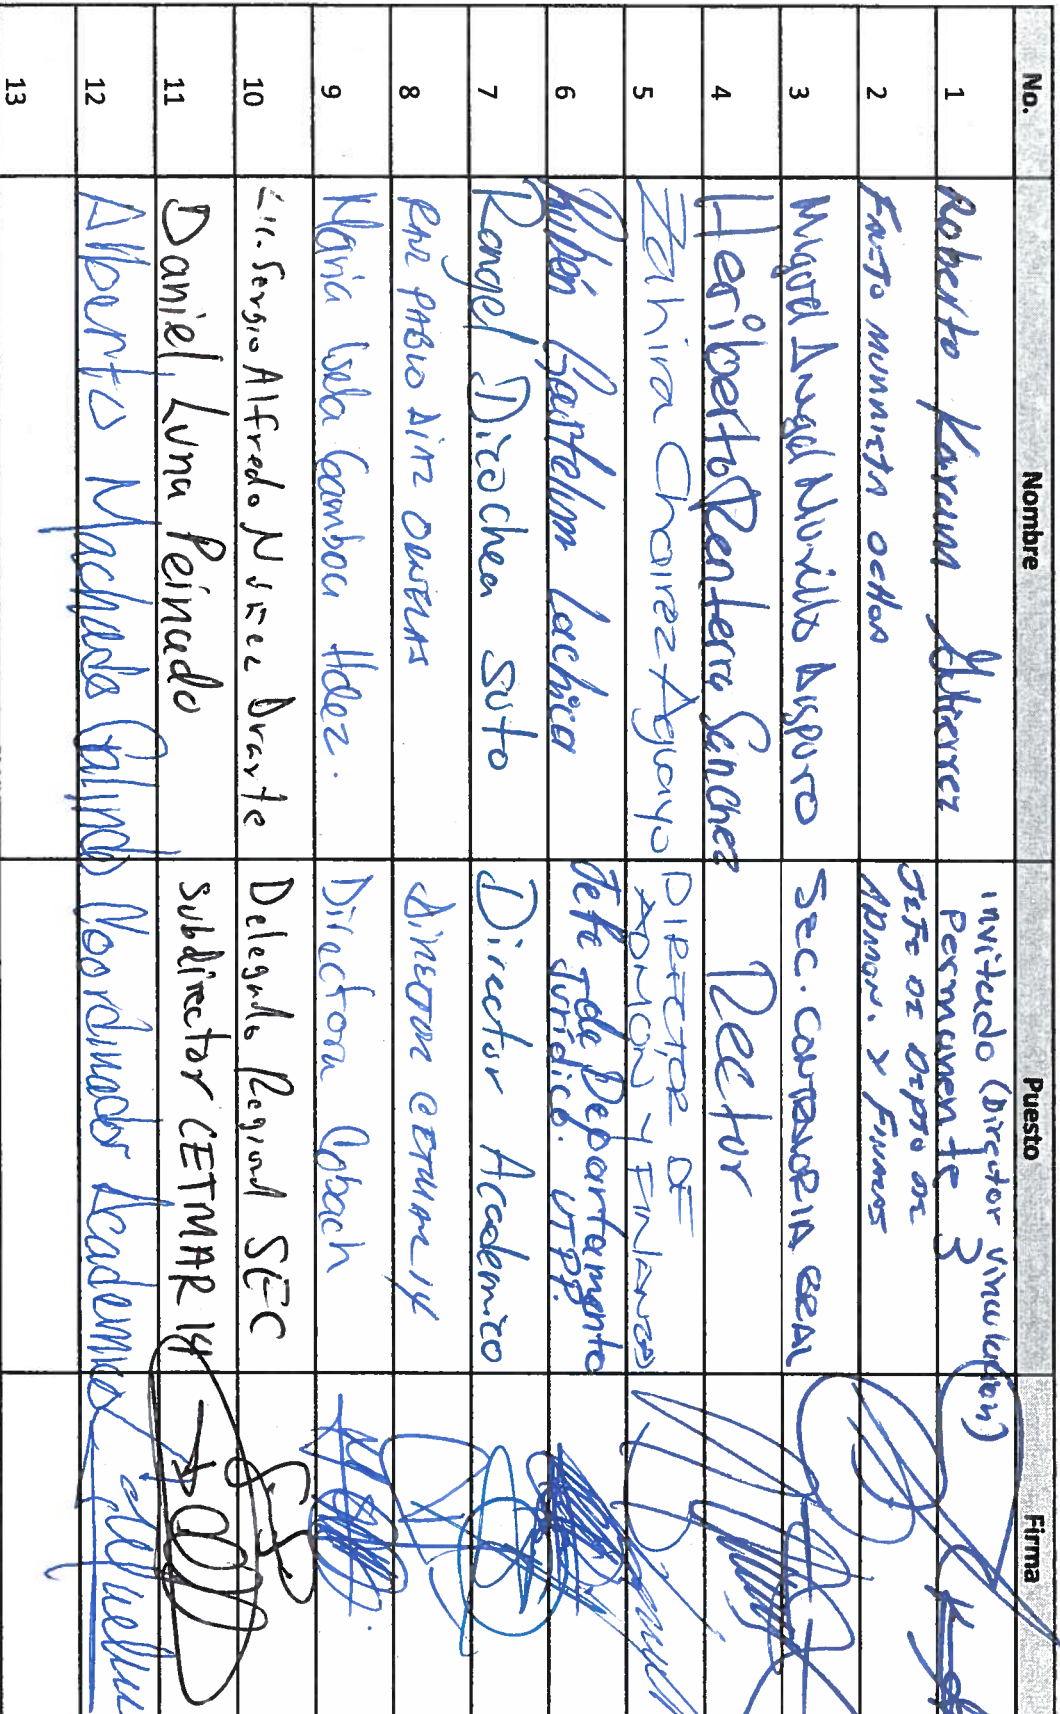 No. Nombre Puesto Firma
1 Roberto Karam Gutierrez Invitado (Director Vinculacion) Permanente
2 Fausto Munnieta Ochoa Jefe de Depto de Admon. y Finanzas
3 Miguel Angel Murillo Aispuro Sec. Contraloria Gral
4 Heriberto Renteria Sanchez Rector
5 Zahira Chairez Aguayo DIRECTOR DE ADMON Y FINANZAS
6 Rubén Jefe de Departamento Jurídico. UTPP.
7 Rangel Dicochea Soto Director Academico
8 PABLO DIAZ ORNELAS DIRECTOR CETMAR 14
9 Maria Isela Gamboa Hdez. Directora Cobach
10 Lic. Sergio Alfredo Nuñez Duarte Delegado Regional SEC
11 Daniel Luna Peinado Subdirector CETMAR 14
12 Alberto Machado Galindo Coordinador Academico
13